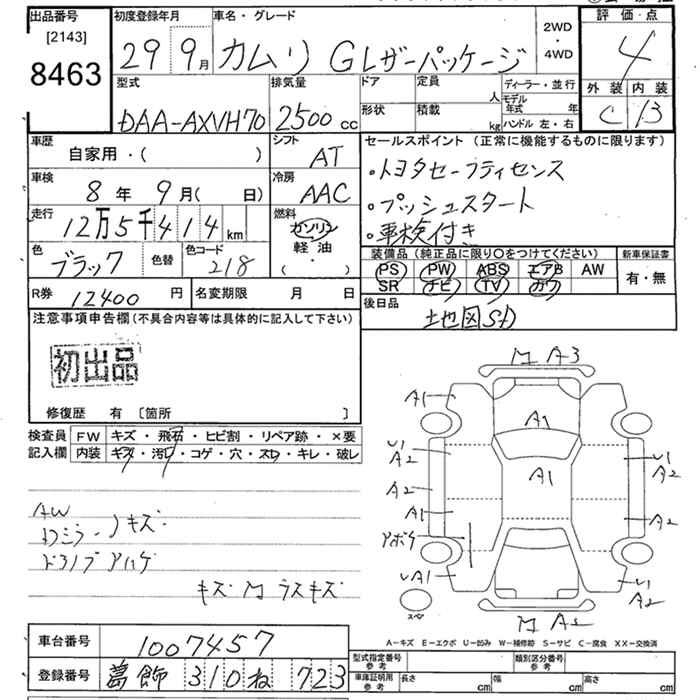 出品番号 [2143] 8463
初度登録年月 29 9月
車名・グレード カムリ Gレザーパッケージ
2WD・4WD
評価・点 4
外装 C 内装 B
型式 DAA-AXVH70
排気量 2500 cc
ドア 形状
定員 人
積載 kg
ディーラー・並行
モデル年式 年
ハンドル 左・右
車歴 自家用・( )
シフト AT
車検 8年 9月( 日)
冷房 AAC
走行 12万5千414km
燃料 ガソリン 軽油 ( ・ )
色 ブラック 色替
色コード 218
R券 12400円
名変期限 月 日
セールスポイント(正常に機能するものに限ります)
・トヨタセーフティセンス
・プッシュスタート
・車検付き
装備品(純正品に限り○をつけてください)
新車保証書
PS PW ABS エアB AW
SR ナビ TV カワ
有・無
後日品 地図SD
注意事項申告欄(不具合内容等は具体的に記入して下さい)
初出品
修復歴 有 [箇所 ]
検査員記入欄
FW キズ・飛石・ヒビ割・リペア跡・×要
内装 キズ・汚レ・コゲ・穴・スレ・キレ・破レ
AW
キズ
キズ M
M A3
A1
A1
A1
U1
A2
A2
A1
U1
A2
A2
A1
U1
A2
M
スペア
A-キズ E-エクボ U-凹み W-補修跡 S-サビ C-腐食 XX-交換済
車台番号 1007457
登録番号 葛飾 310 ね 723
型式指定番号 参考
類別区分番号 参考
車庫証明用 参考 長さ cm 幅 cm 高さ cm